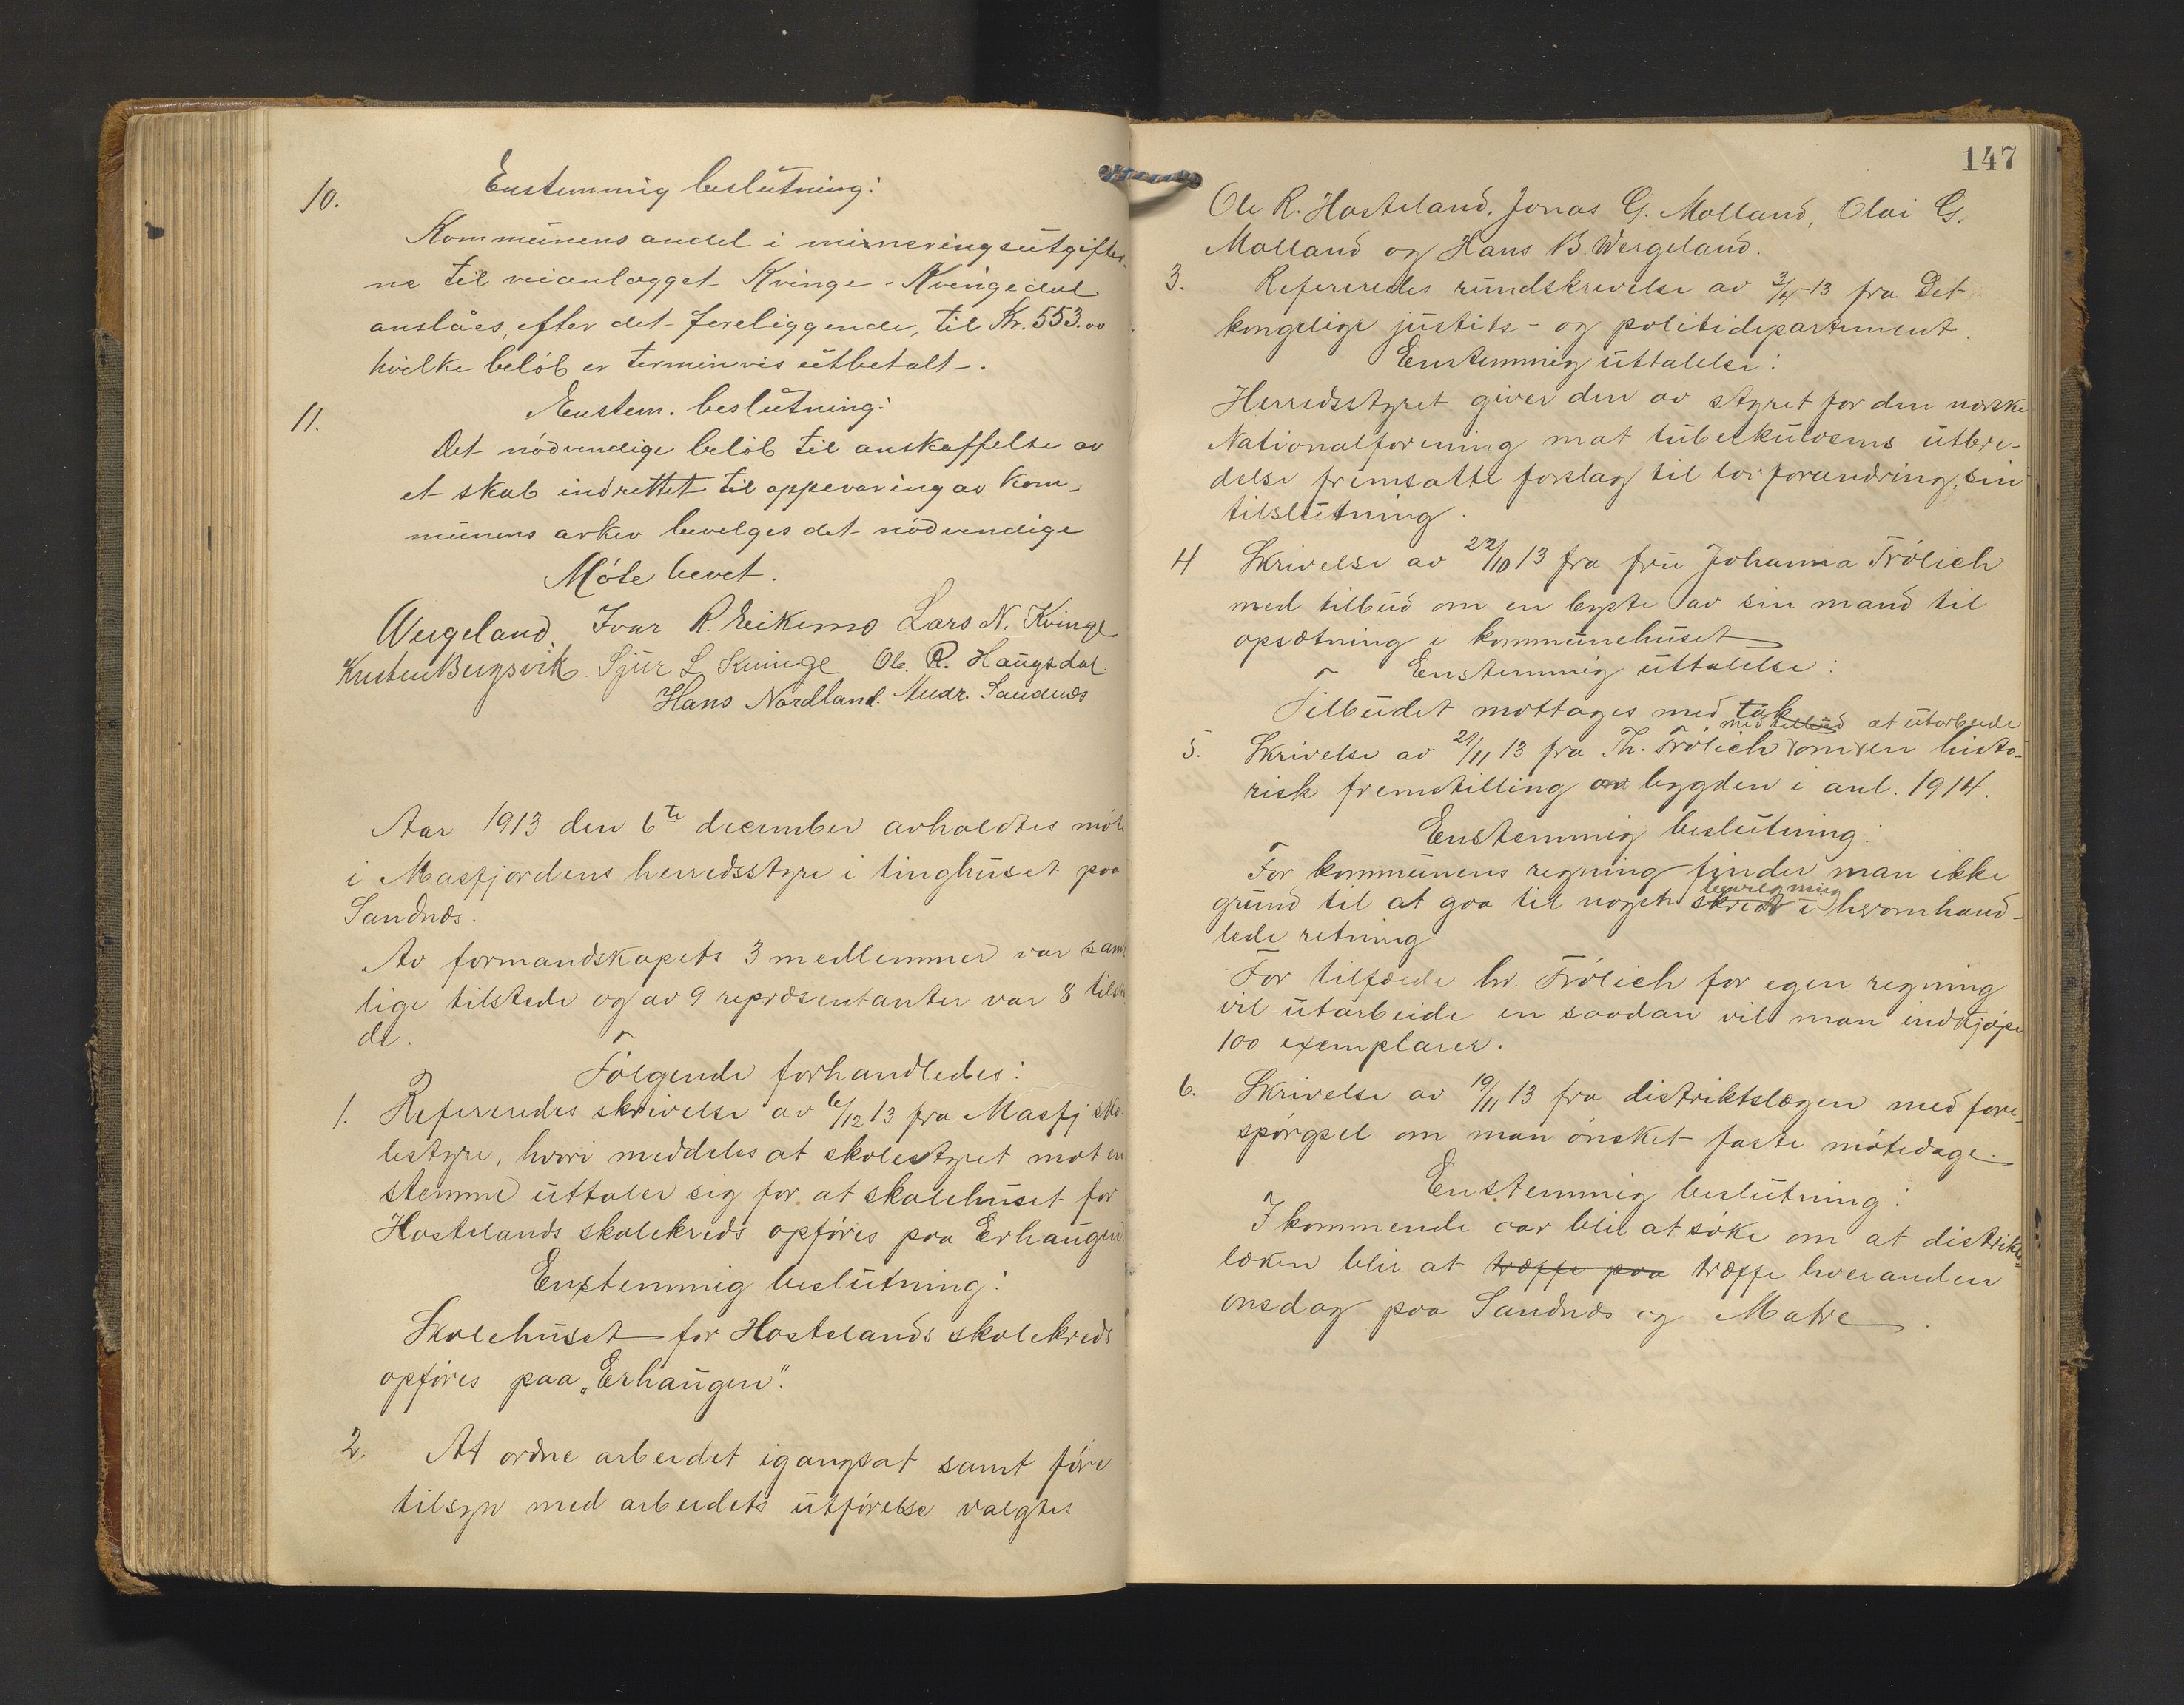 10. Enstemmig beslutning:
Kommunens andel i mineringsutgifter-
ne til veianlægget Kvinge - Kvingedal
anslåes, efter det foreliggende, til Kr. 553.00
hvilke beløb er terminvis utbetalt.
11. Enstem. beslutning:
Det nødvendige beløb til anskaffelse av
et skab indrettet til oppevaring av kom-
munens arkiv bevelges det nødvendige
Møte hevet.
Wergeland. Ivar R. Eikemo Lars N. Kvinge
Kristen Bergsvik. Sjur L Kvinge Ole. R. Haugsdal.
Hans Nordland. Andr. Sandnes
Aar 1913 den 6te december avholdtes møte
i Masfjordens herredsstyre i tinghuset paa
Sandnæs.
Av formandskapets 3 medlemmer var sam-
lige tilstede og av 9 repræsentanter var 8 tilste
de.
Følgende forhandledes:
1. Refereredes skrivelse av 6/12 13 fra Masfj sko-
lestyre, hvori meddeles at skolestyret mot en
stemme uttaler sig for at skolehuset for
Hostelands skolekreds opføres paa Erhaugen.
Enstemmig beslutning:
Skolehuset for Hostelands skolekreds
opføres paa „Erhaugen".
2. At ordne arbeidet igangsat samt føre
tilsyn med arbeidets utførelse valgtes
147
Ole R. Hosteland, Jonas G. Molland, Olai G.
Molland og Hans B. Wergeland.
3. Refereredes rundskrivelse av 3/4-13 fra Det
kongelige justits- og politidepartement.
Enstemmig uttalelse:
Herredsstyret giver den av styret for den norske
Nationalforening mot tuberkulosens utbre-
delse fremsatte forslag til lovforandring, sin
tilslutning.
4 Skrivelse av 22/10 13 fra fru Johanna Frölich
med tilbud om en byste av sin mand til
opsætning i kommunehuset
Enstemmig uttalelse:
Tilbudet mottages med tak
med tilbud at utarbeide
5. Skrivelse av 21/11 13 fra Th. Frölich om en histo-
risk fremstilling av bygden i anl. 1914.
Enstemmig beslutning:
For kommunens regning finder man ikke
bevilgning
grund til at gaa til nogen skridt i heromhand-
lede retning
For tilfælde hr. Frölich for egen regning
vil utarbeide en saadan vil man indkjøpe
100 exemplarer.
6. Skrivelse av 19/11 13 fra distriktslægen med fore-
spørgsel om man ønsket faste møtedage.
Enstemmig beslutning:
I kommende aar blir at søke om at distrikts-
lægen blir at træffe paa træffe hver anden
onsdag paa Sandnæs og Matre.